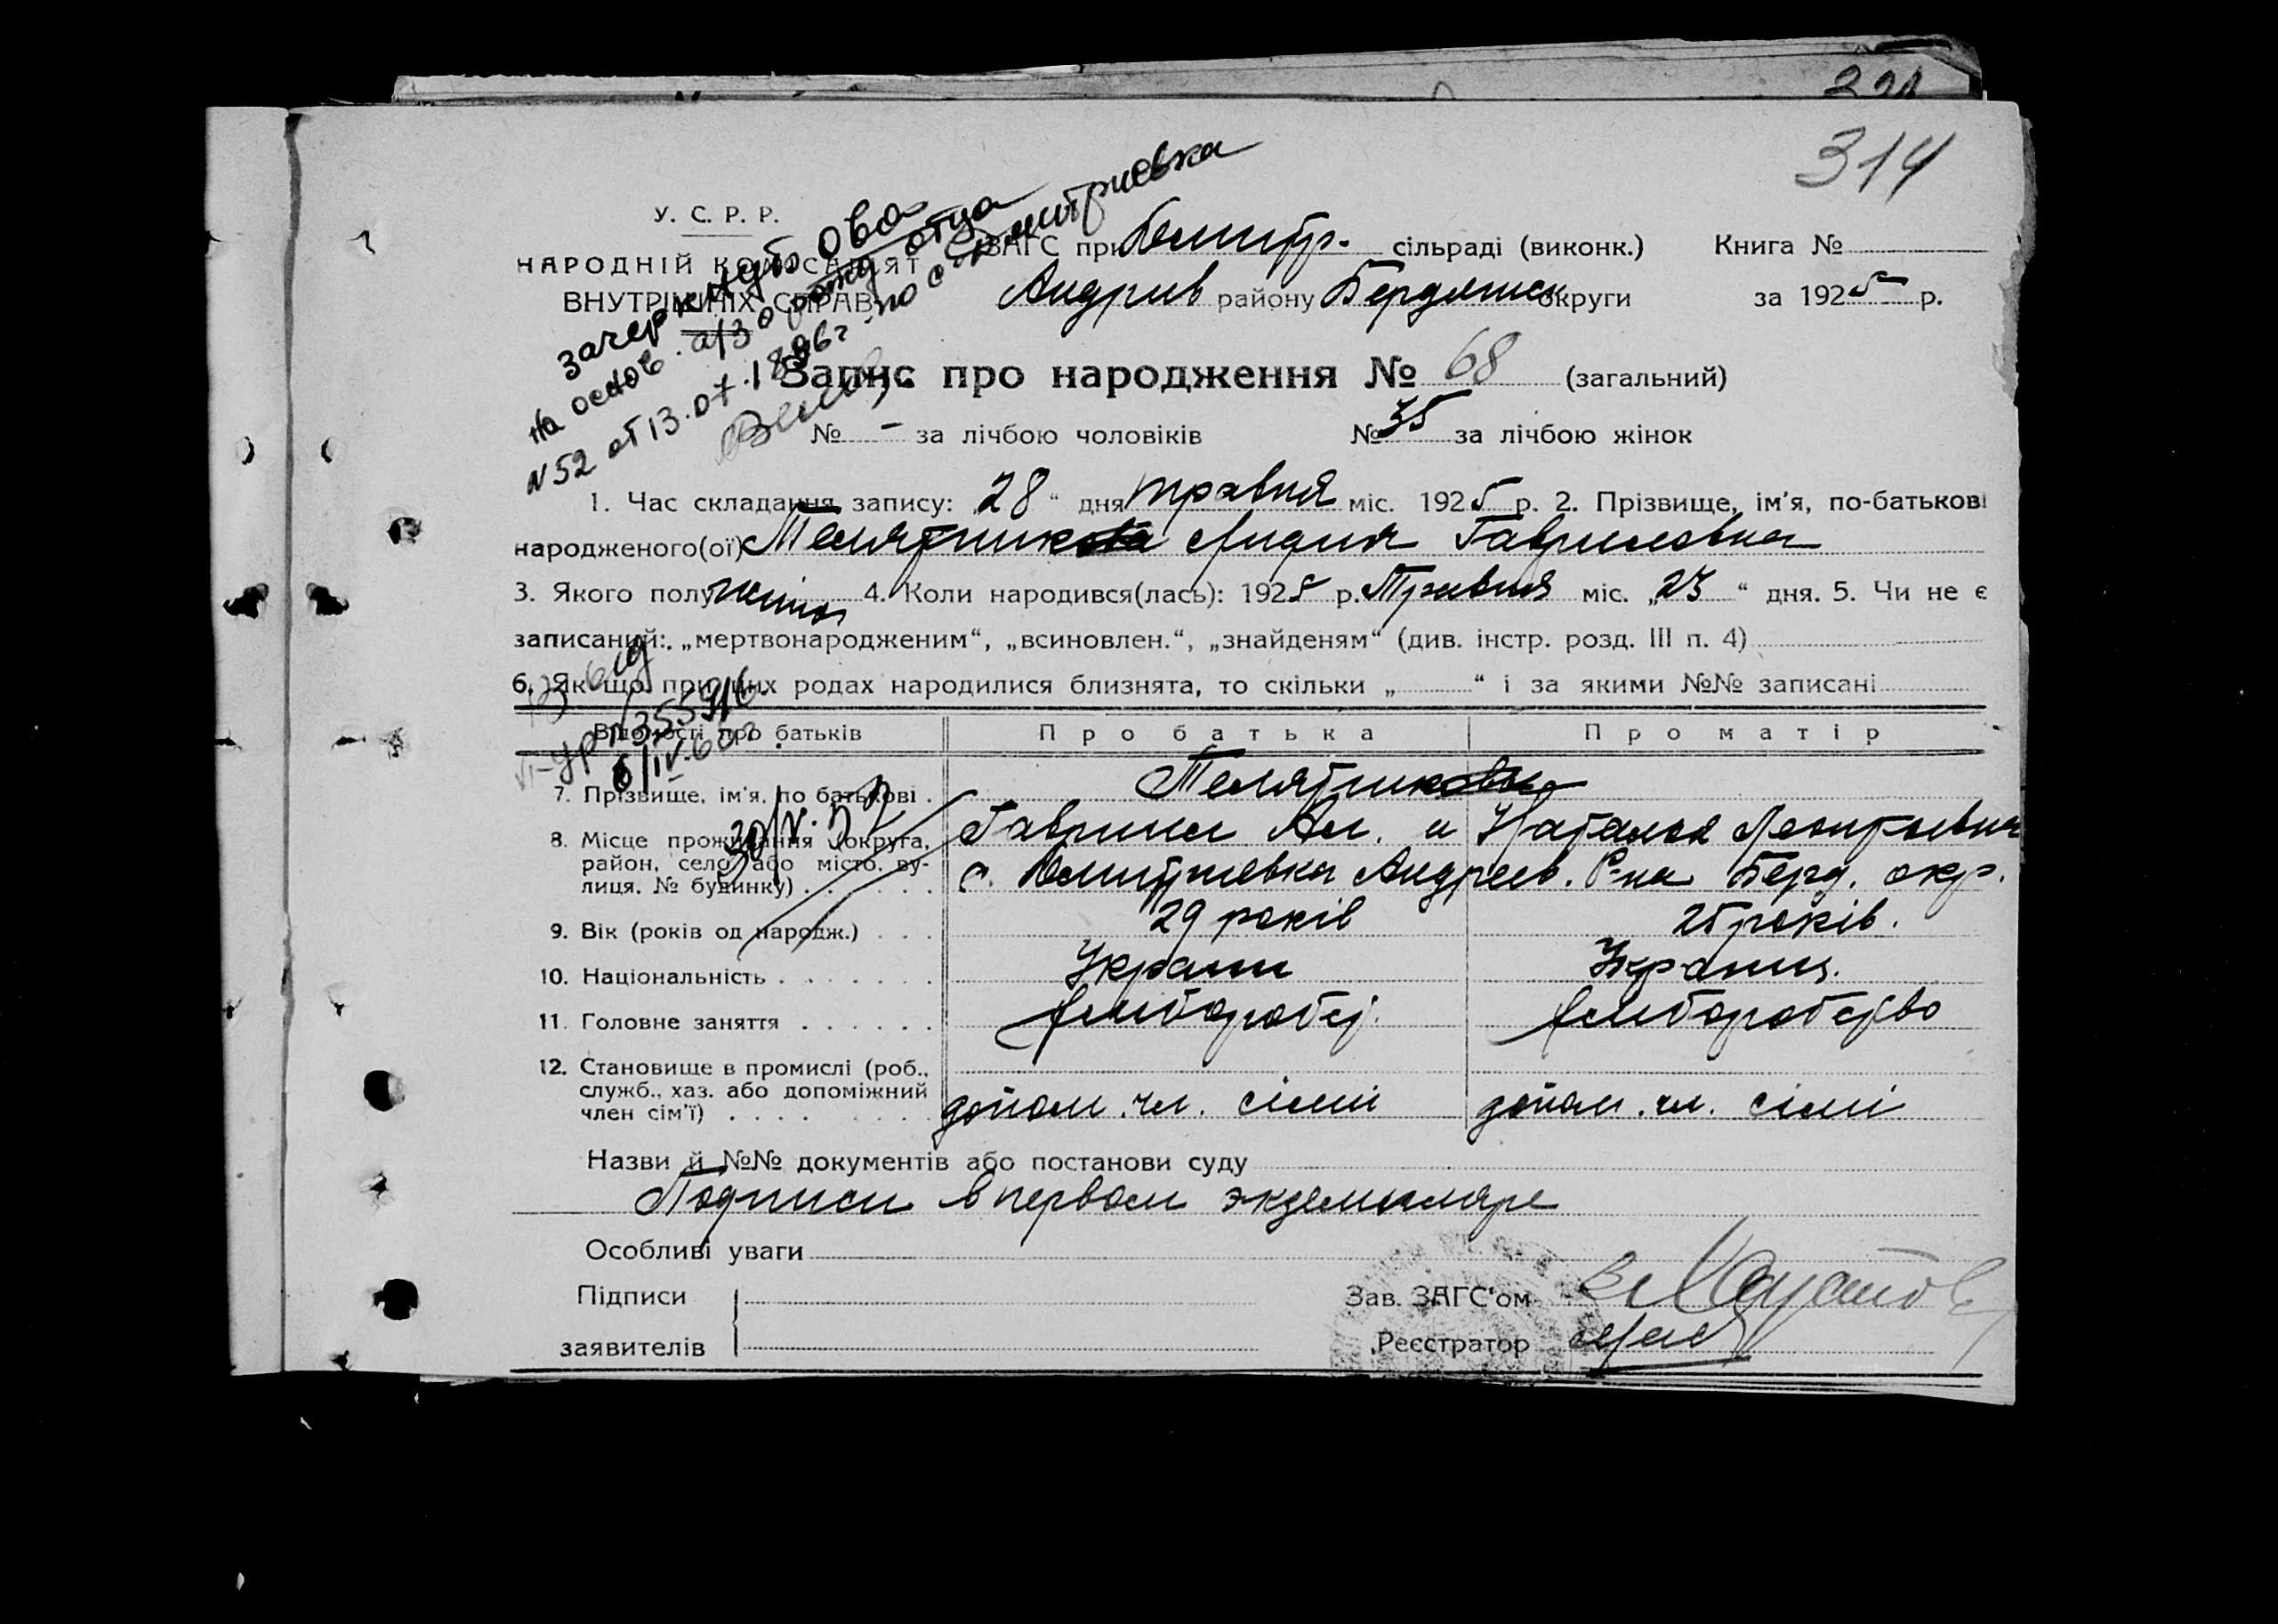 321
314
У. С. Р. Р.
НАРОДНІЙ КОМІСАРІЯТ
ВНУТРІШНІХ СПРАВ
зачеркнуто ова
на основ. а/з о рожд отца
N 52 от 13.07.1896г по с Дмитриевка
ЗАГС при Дмитр. сільраді (виконк.) Книга №
Андрив району Бердянск округи за 1925 р.
Запис про народження № 68 (загальний)
№ - за лічбою чоловіків № 35 за лічбою жінок
1. Час складання запису: „28“ дня травня міс. 1925 р. 2. Прізвище, ім'я, по-батькові
народженого(ої) Телятникова Лидия Гавриловна
3. Якого полу жіноч 4. Коли народився(лась): 1925 р. Травня міс. „23“ дня. 5. Чи не є
записаний: „мертвонародженим“, „всиновлен.“, „знайденям“ (див. інстр. розд. III п. 4)
6. Як що при цих родах народилися близнята, то скільки „ “ і за якими №№ записані
6/IV.60г.
30/V.52
Відомості про батьків Про батька Про матір
7. Прізвище, ім'я, по батькові . Телятниковы
8. Місце проживання (округа, Гаврили Ал. и Наталья Леонтьевна
район, село або місто, ву- с. Дмитриевка Андреев. Р-на Берд. окр.
лиця, № будинку) . . . . . .
9. Вік (років од народж.) . . . 29 років 25 років.
10. Національність . . . . . . . Украин Украинц.
11. Головне заняття . . . . . . хлібороб хліборобство
12. Становище в промислі (роб.,
служб., хаз. або допоміжний
член сім'ї) . . . . . . допом. чл. сімі допом. чл. сімі
Назви й №№ документів або постанови суду
Подписи в первом экземпляре
Особливі уваги
Підписи Зав. ЗАГС'ом
заявителів Реєстратор